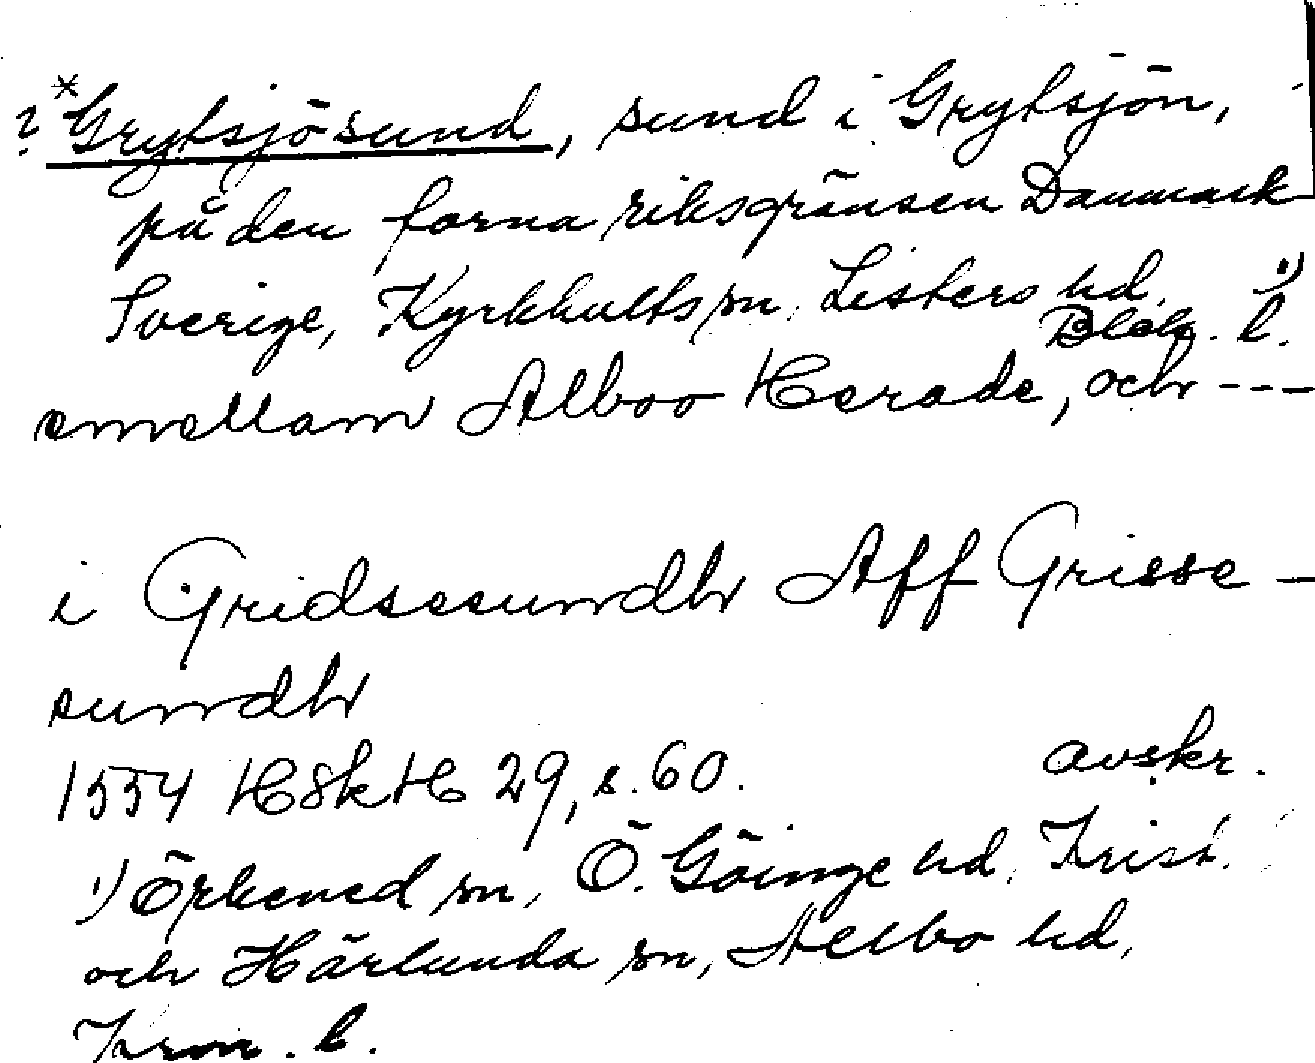 ? *Grytsjösund, sund i Grytsjön,
på den forna riksgränsen Danmark
Sverige, Kyrkhults sn, Listers hd, 1)
Blek. l.
emellam Alboo Herade, och ---
i Gridsesundh Aff Grisse-
sundh
1554 HSkH 29, s. 60. avskr.
1) Örkened sn, Ö. Göinge hd, Krist.
och Härlunda sn, Allbo hd,
Kron. l.